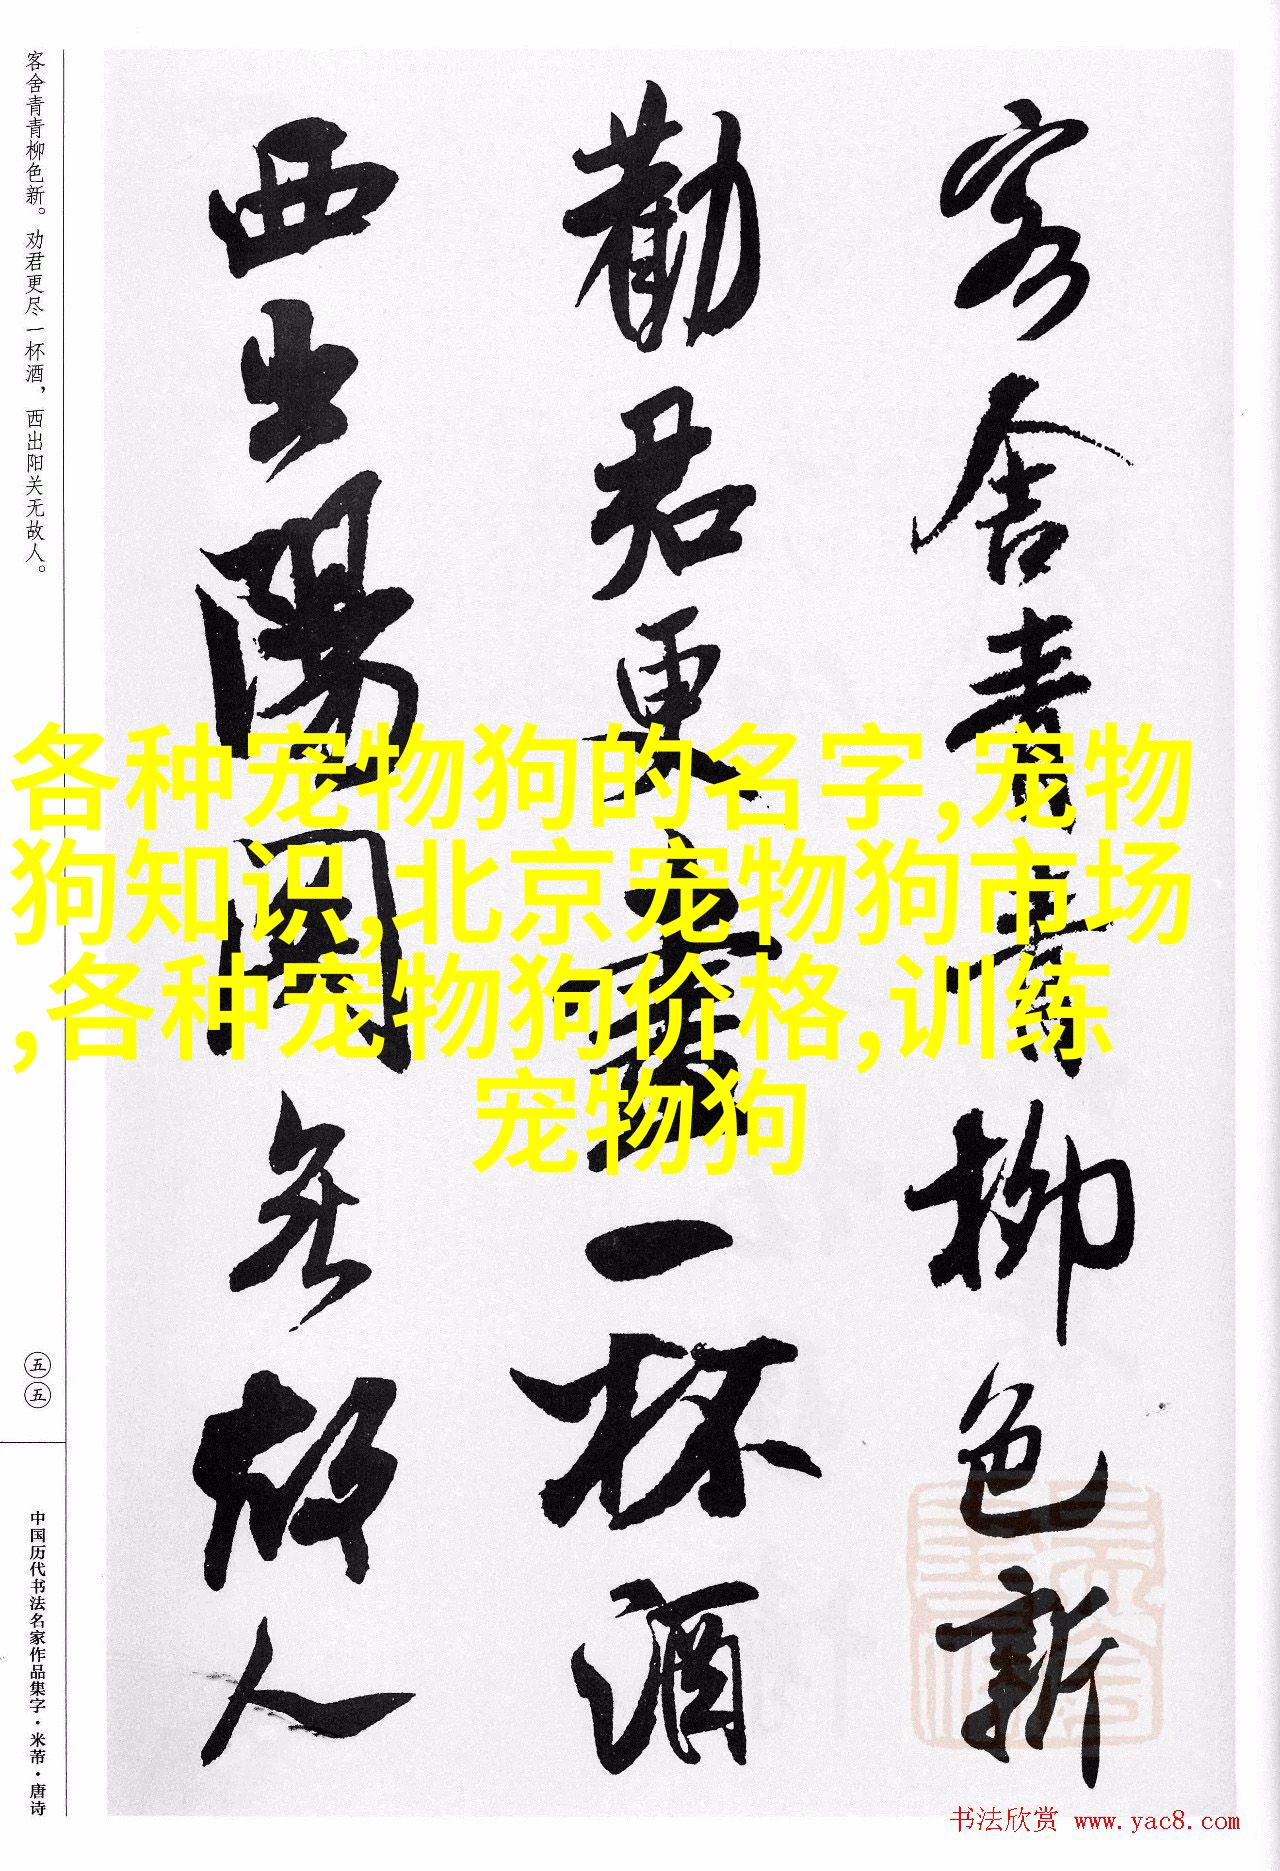 客舍青青柳色新
勸君更盡一杯酒
西出陽關無故人
客舍青青柳色新。劝君更尽一杯酒，西出阳关无故人。
五五
中国历代书法名家作品集字·米芾·唐诗
各种宠物狗的名字,宠物
狗知识,北京宠物狗市场
,各种宠物狗价格,训练
宠物狗
书法欣赏 www.yac8.com